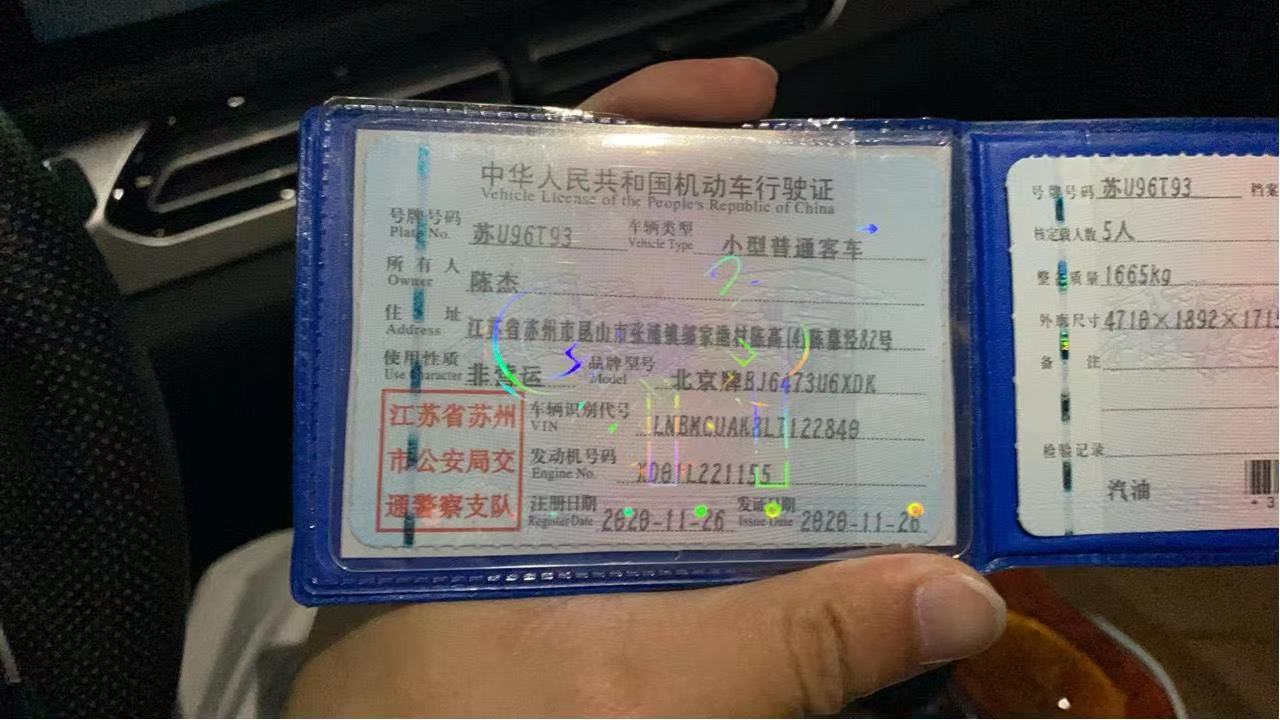 中华人民共和国机动车行驶证
Vehicle License of the People's Republic of China
号牌号码 苏U96T93 车辆类型 小型普通客车
Plate No. Vehicle Type
所有人 陈杰
Owner
住址 江苏省苏州市昆山市张浦镇邹家 陈高(4)陈墓泾82号
Address
使用性质 非营运 品牌型号 北京牌BJ6473U6XDK
Use Character Model
江苏省苏州
市公安局交
通警察支队
车辆识别代号 LNBMCUAK8LT122840
VIN
发动机号码 L221155
Engine No.
注册日期 2020-11-26 发证日期 2020-11-26
Register Date Issue Date
号牌号码 苏U96T93 档案
核定载人数 5人
整备质量 1665kg
外廓尺寸 4710×1892×171
备注
检验记录
汽油
* 3